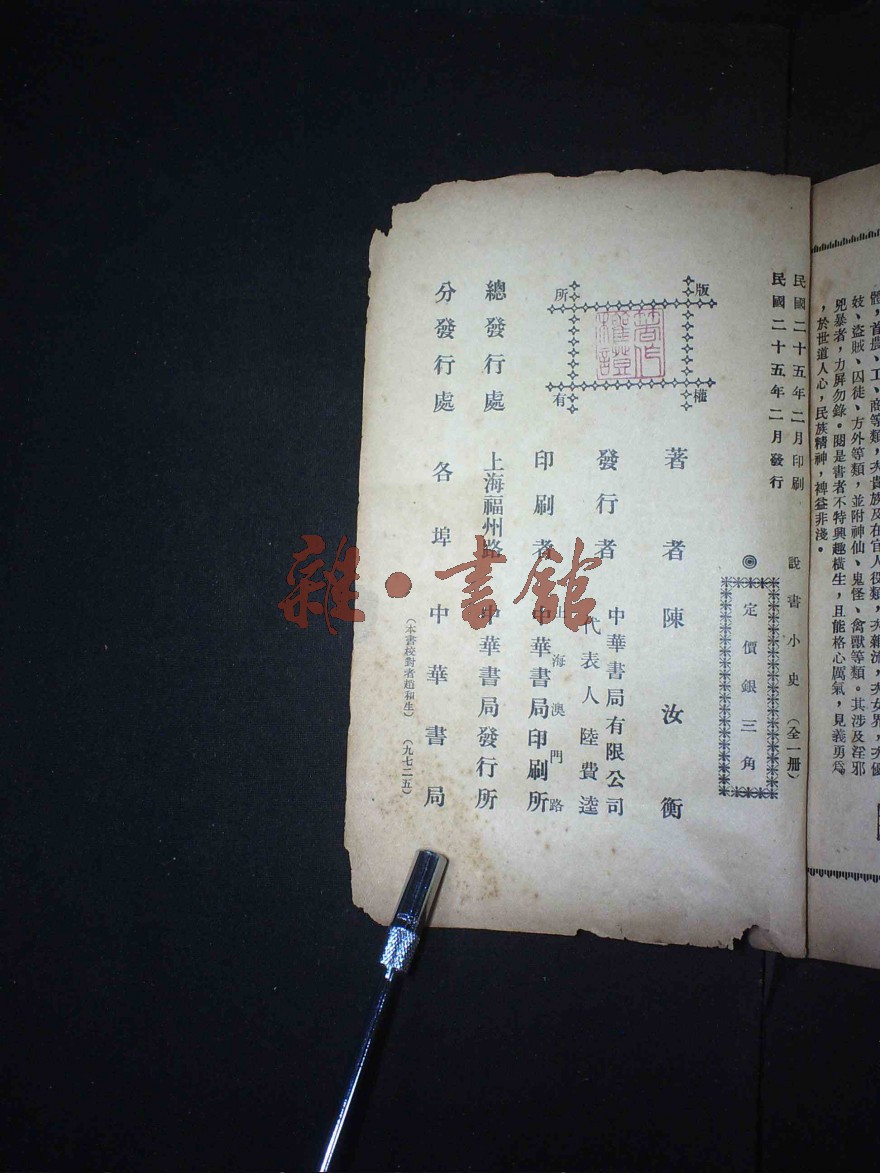 體，首農、工、商等類，次貴族及在官人役類，次雜流，次女界，次優
妓、盜賊、囚徒、方外等類，並附神仙、鬼怪、禽獸等類。其涉及淫邪
兇暴者，力屏勿錄。閱是書者不特興趣橫生，且能格心厲氣，見義勇爲
，於世道人心，民族精神，裨益非淺。
民國二十五年二月印刷
民國二十五年二月發行
說書小史（全一冊）
◎定價銀三角
版權所有
著作權證
著者 陳汝衡
發行者 中華書局有限公司
代表人 陸費逵
印刷者 上海澳門路
中華書局印刷所
總發行處 上海福州路 中華書局發行所
分發行處 各埠中華書局
（本書校對者趙和生）（九七二五）
雜·書館